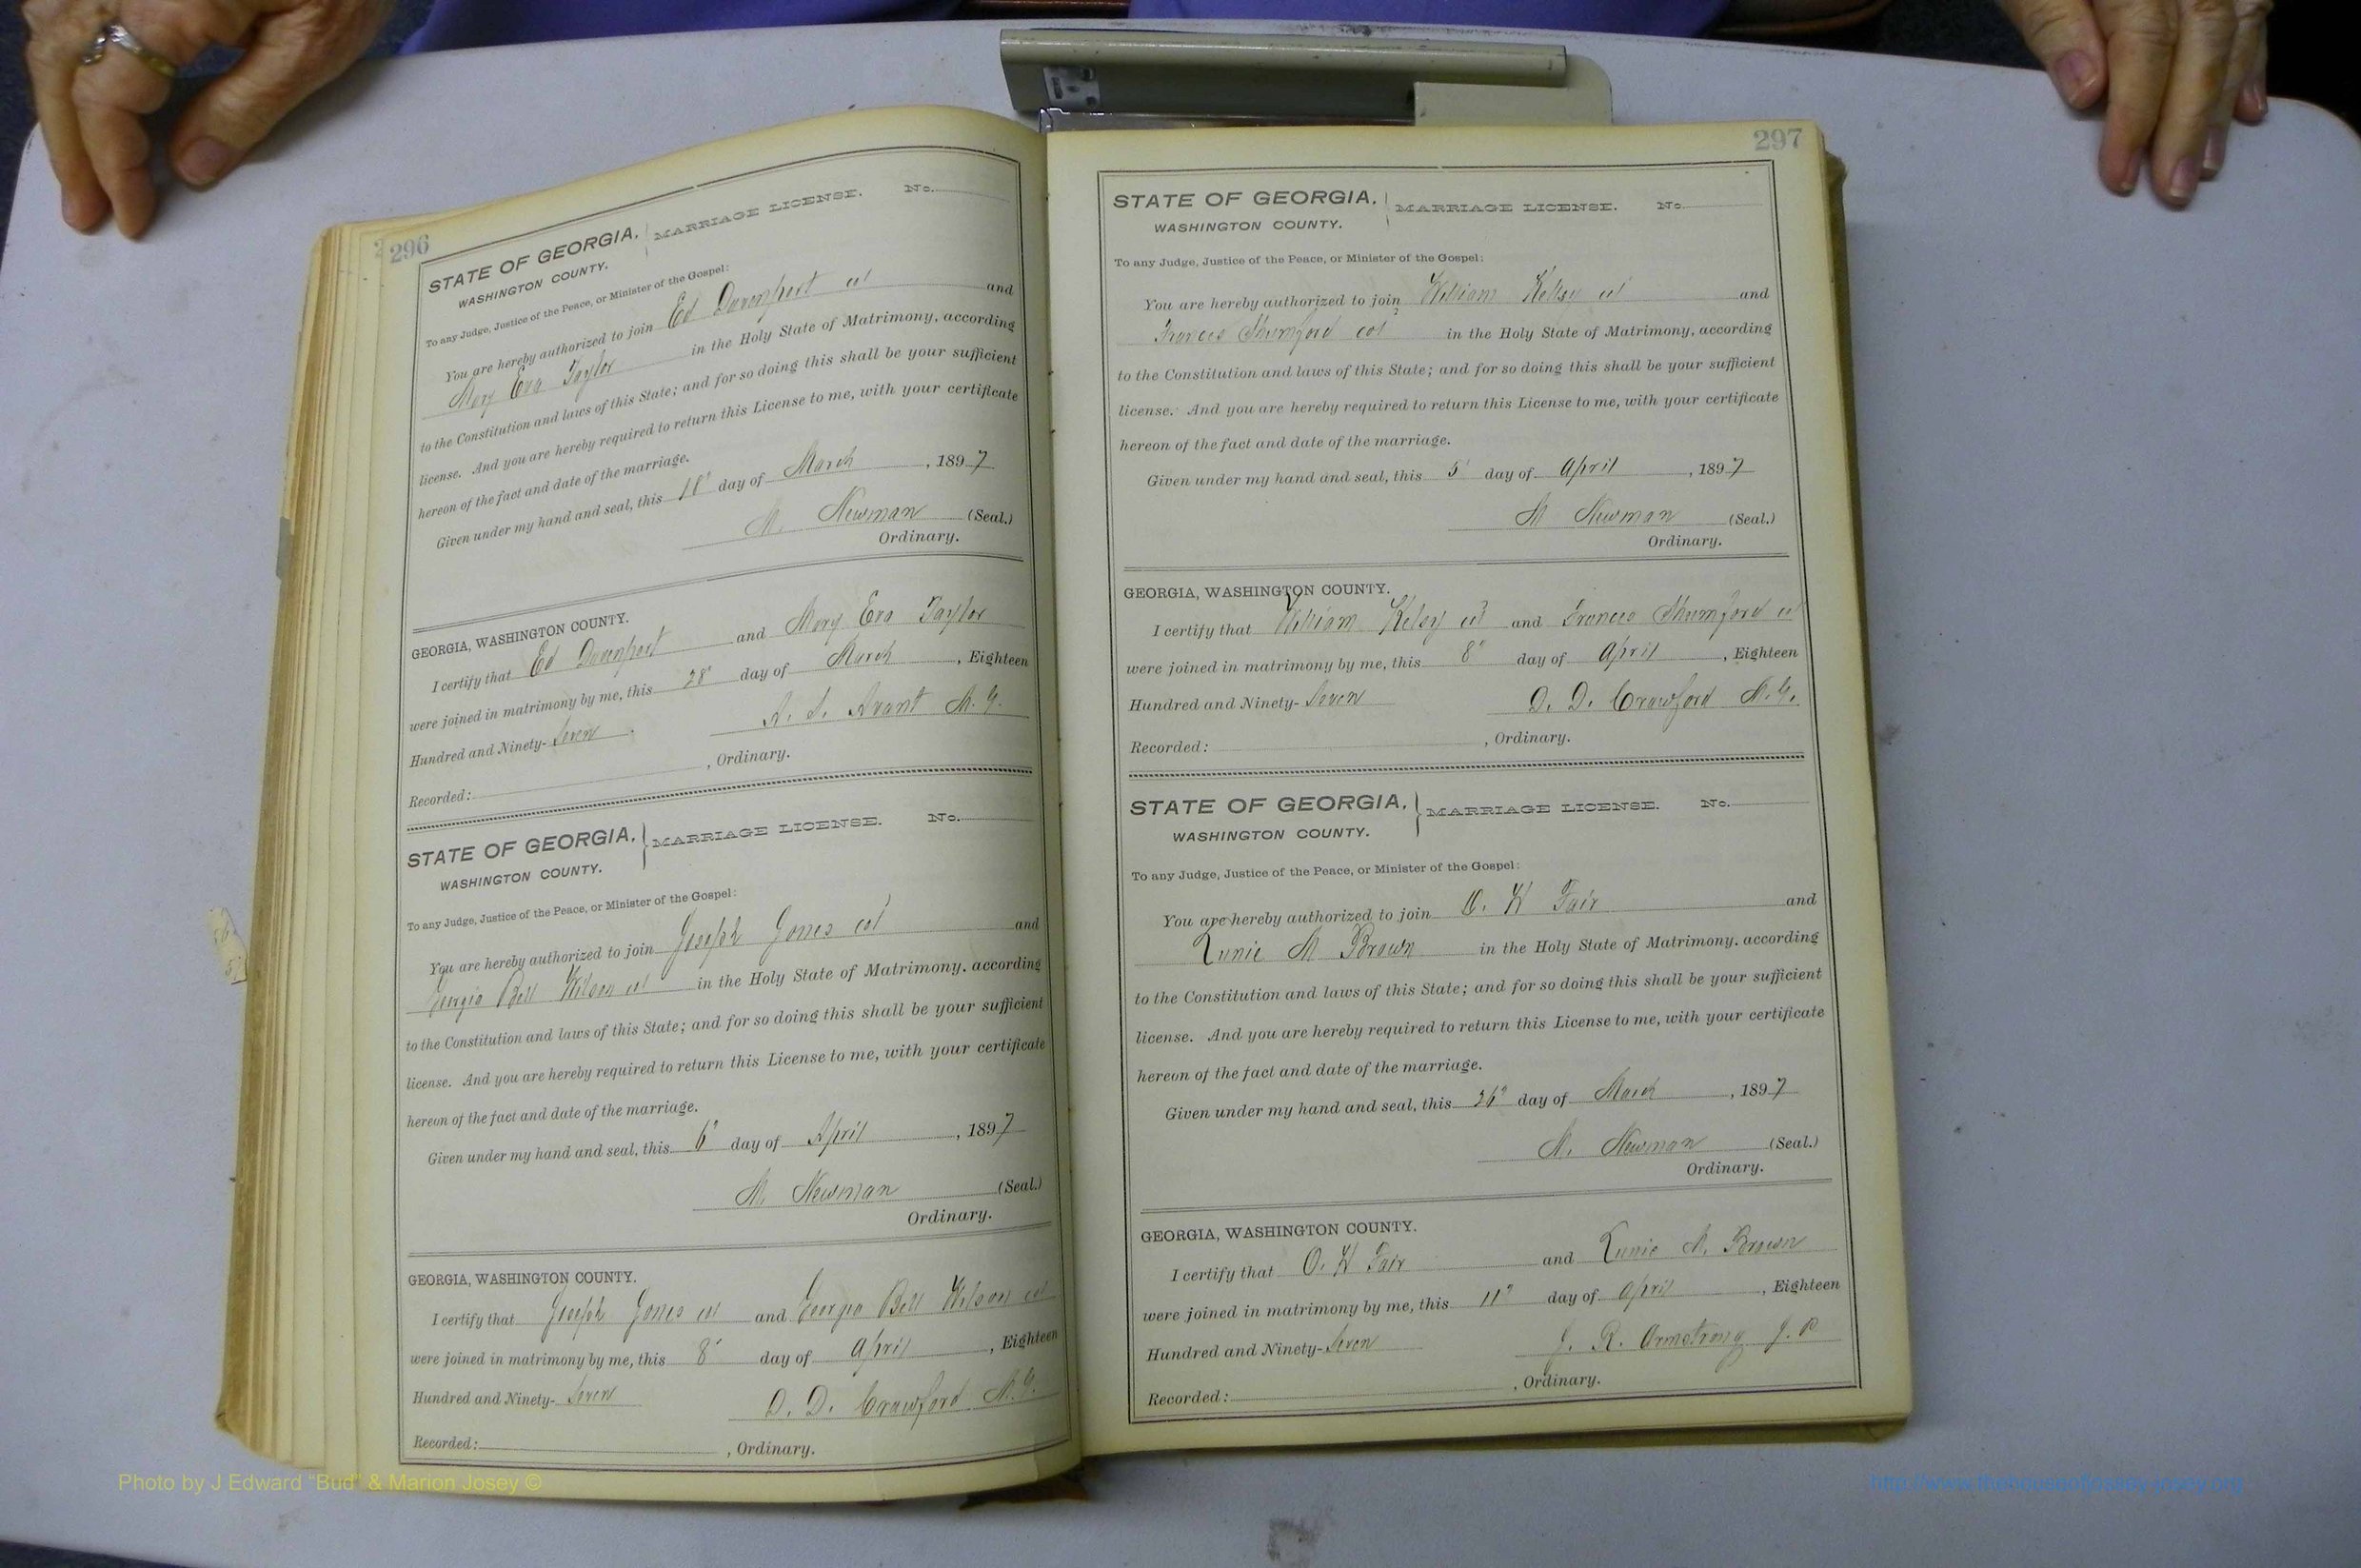 296
STATE OF GEORGIA, MARRIAGE LICENSE. No.
WASHINGTON COUNTY.
To any Judge, Justice of the Peace, or Minister of the Gospel:
You are hereby authorized to join Ed Davenport col and
Mary Eva Taylor in the Holy State of Matrimony, according
to the Constitution and laws of this State; and for so doing this shall be your sufficient
license. And you are hereby required to return this License to me, with your certificate
hereon of the fact and date of the marriage.
Given under my hand and seal, this day of March, 1897
M. Newman (Seal.)
Ordinary.
GEORGIA, WASHINGTON COUNTY.
I certify that Ed Davenport and Mary Eva Taylor
were joined in matrimony by me, this 28" day of March, Eighteen
Hundred and Ninety-Seven A. S. Avant M.G.
Recorded: , Ordinary.
STATE OF GEORGIA, MARRIAGE LICENSE. No.
WASHINGTON COUNTY.
To any Judge, Justice of the Peace, or Minister of the Gospel:
You are hereby authorized to join Joseph Jones col and
Georgia Bell Wilson col in the Holy State of Matrimony, according
to the Constitution and laws of this State; and for so doing this shall be your sufficient
license. And you are hereby required to return this License to me, with your certificate
hereon of the fact and date of the marriage.
Given under my hand and seal, this 6" day of April, 1897
M. Newman (Seal.)
Ordinary.
GEORGIA, WASHINGTON COUNTY.
I certify that Joseph Jones col and Georgia Bell Wilson col
were joined in matrimony by me, this 8" day of April, Eighteen
Hundred and Ninety-Seven D. D. Crawford M.G.
Recorded: , Ordinary.
297
STATE OF GEORGIA, MARRIAGE LICENSE. No.
WASHINGTON COUNTY.
To any Judge, Justice of the Peace, or Minister of the Gospel:
You are hereby authorized to join William Kelsy col and
Frances Thurmford col in the Holy State of Matrimony, according
to the Constitution and laws of this State; and for so doing this shall be your sufficient
license. And you are hereby required to return this License to me, with your certificate
hereon of the fact and date of the marriage.
Given under my hand and seal, this 5" day of April, 1897
M Newman (Seal.)
Ordinary.
GEORGIA, WASHINGTON COUNTY.
I certify that William Kelsy col and Frances col
were joined in matrimony by me, this 8" day of April, Eighteen
Hundred and Ninety-Seven D. D. Crawford M.G.
Recorded: , Ordinary.
STATE OF GEORGIA, MARRIAGE LICENSE. No.
WASHINGTON COUNTY.
To any Judge, Justice of the Peace, or Minister of the Gospel:
You are hereby authorized to join O. H Fair and
Lunie M Brown in the Holy State of Matrimony, according
to the Constitution and laws of this State; and for so doing this shall be your sufficient
license. And you are hereby required to return this License to me, with your certificate
hereon of the fact and date of the marriage.
Given under my hand and seal, this 26" day of March, 1897
M. Newman (Seal.)
Ordinary.
GEORGIA, WASHINGTON COUNTY.
I certify that O. H Fair and Lunie M. Brown
were joined in matrimony by me, this 11" day of April, Eighteen
Hundred and Ninety-Seven J. R. Armstrong J.P
Recorded: , Ordinary.
Photo by J Edward "Bud" & Marion Josey ©